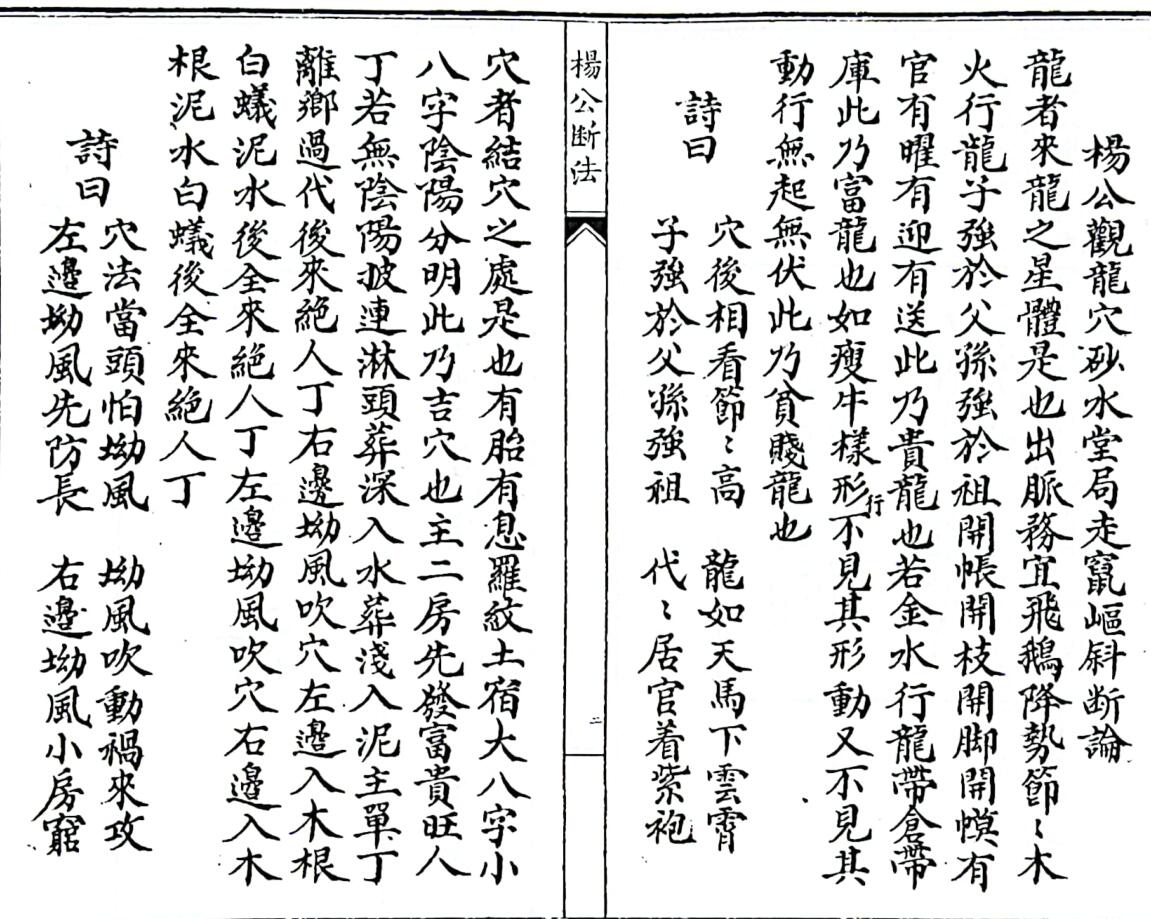 楊公觀龍穴砂水堂局走竄嶇斜断論
龍者來龍之星體是也出脈務宜飛鵝降勢節〻木
火行龍子強於父孫強於祖開帳開枝開脚開幙有
官有曜有迎有送此乃貴龍也若金水行龍帶倉帶
庫此乃富龍也如瘦牛樣形行不見其形動又不見其
動行無起無伏此乃貧賤龍也
詩曰
穴後相看節〻高 龍如天馬下雲霄
子強於父孫強祖 代〻居官着紫袍
楊公断法
二
穴者結穴之處是也有胎有息羅紋土宿大八字小
八字陰陽分明此乃吉穴也主二房先發富貴旺人
丁若無陰陽披連淋頭葬深入水葬淺入泥主單丁
離鄉過代後來絕人丁右邊坳風吹穴左邊入木根
白蟻泥水後全來絕人丁左邊坳風吹穴右邊入木
根泥水白蟻後全來絕人丁
詩曰
穴法當頭怕坳風 坳風吹動禍來攻
左邊坳風先防長 右邊坳風小房窮